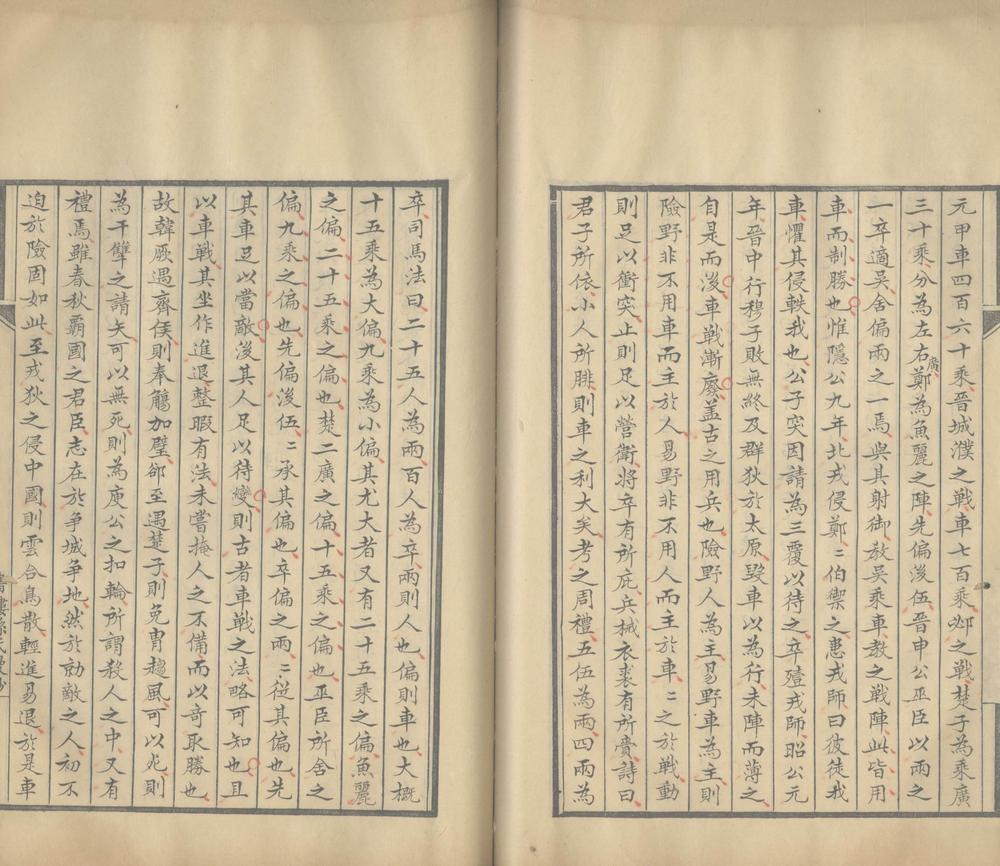 元甲車四百六十乘晉城濮之戰車七百乘邲之戰楚子為乘廣
三十乘分為左右廣鄭為魚麗之陣先偏後伍晉申公巫臣以兩之
一卒適吳舍偏兩之一焉與其射御教吳乘車教之戰陣此皆用
車而制勝也惟隱公九年北戎侵鄭〻伯禦之患戎師曰彼徒我
車懼其侵軼我也公子突因請為三覆以待之卒殪戎師昭公元
年晉中行穆子敗無終及群狄於太原毀車以為行未陣而薄之
自是而後車戰漸廢蓋古之用兵也險野人為主易野車為主則
險野非不用車而主於人易野非不用人而主於車〻之於戰動
則足以衝突止則足以營衛將卒有所庇兵械衣裘有所賫詩曰
君子所依小人所腓則車之利大矣考之周禮五伍為兩四兩為
卒司馬法曰二十五人為兩百人為卒兩則人也偏則車也大概
十五乘為大偏九乘為小偏其尤大者又有二十五乘之偏魚麗
之偏二十五乘之偏也楚二廣之偏十五乘之偏也巫臣所舍之
偏九乘之偏也先偏後伍〻承其偏也卒偏之兩〻從其偏也先
其車足以當敵後其人足以待變則古者車戰之法略可知也且
以車戰其坐作進退整暇有法未嘗掩人之不備而以奇取勝也
故韓厥遇齊侯則奉觴加璧郤至遇楚子則免冑趨風可以死則
為干犨之請矢可以無死則為庾公之扣輪所謂殺人之中又有
禮焉雖春秋霸國之君臣志在於爭城爭地然於勍敵之人初不
迫於險固如此至戎狄之侵中國則雲合鳥散輕進易退於是車